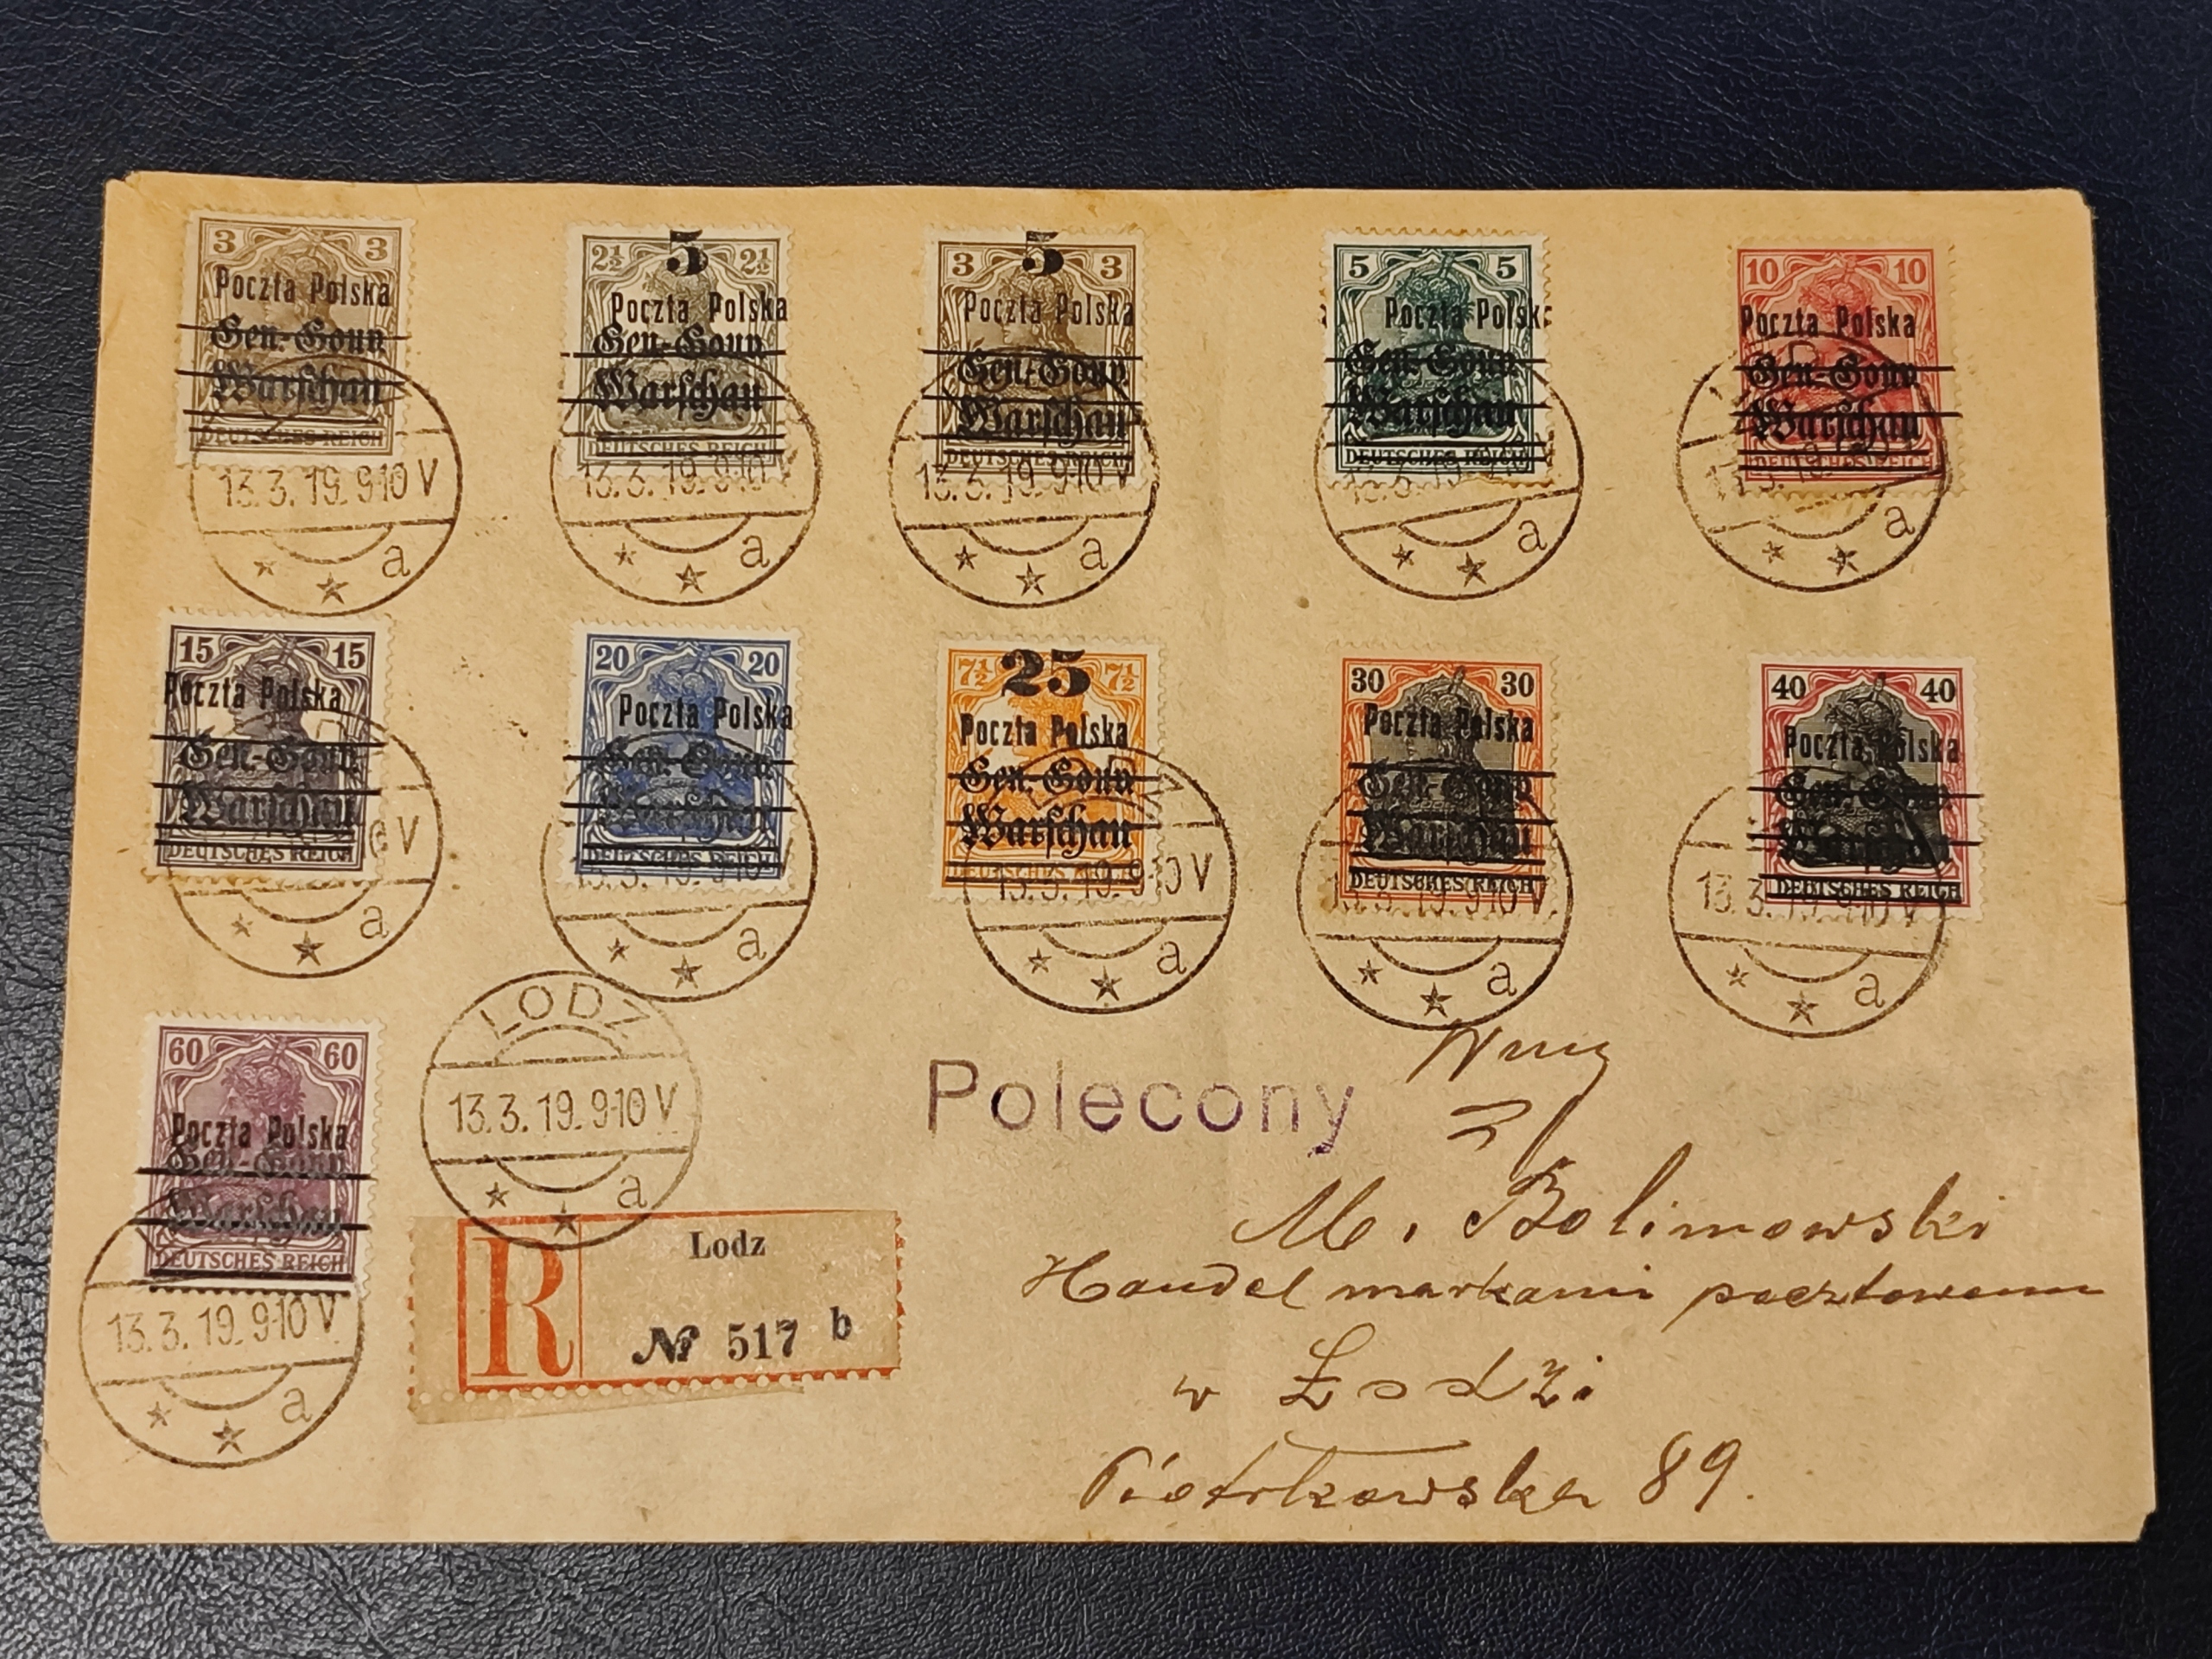 3 3
Poczta Polska
Gen.-Gouv.
Warschau
DEUTSCHES REICH
13.3.19.9-10V
a
2½ 5 2½
Poczta Polska
Gen.-Gouv.
Warschau
DEUTSCHES REICH
13.3.19.9-10V
a
3 5 3
Poczta Polska
Gen.-Gouv.
Warschau
DEUTSCHES REICH
13.3.19.9-10V
a
5 5
a Poczta Polska
Gen.-Gouv.
Warschau
DEUTSCHES REICH
13.3.19.9-10V
a
10 10
Poczta Polska
Gen.-Gouv.
Warschau
DEUTSCHES REICH
a
15 15
Poczta Polska
Gen.-Gouv.
Warschau
DEUTSCHES REICH
V
a
20 20
Poczta Polska
Gen.-Gouv.
Warschau
DEUTSCHES REICH
13.3.19.9-10V
a
7½ 25 7½
Poczta Polska
Gen.-Gouv.
Warschau
13.3.19.9-10V
a
30 30
Poczta Polska
Gen.-Gouv.
Warschau
DEUTSCHES REICH
13.3.19.9-10V
a
40 40
Poczta Polska
Gen.-Gouv.
Warschau
DEUTSCHES REICH
13.3.19.9-10V
a
60 60
Poczta Polska
Gen.-Gouv.
Warschau
DEUTSCHES REICH
13.3.19.9-10V
a
LODZ
13.3.19.9-10V
a
R
Lodz
№ 517 b
Polecony
M. Bolimowski
Handel markami pocztowemi
w Łodzi
Piotrkowska 89.